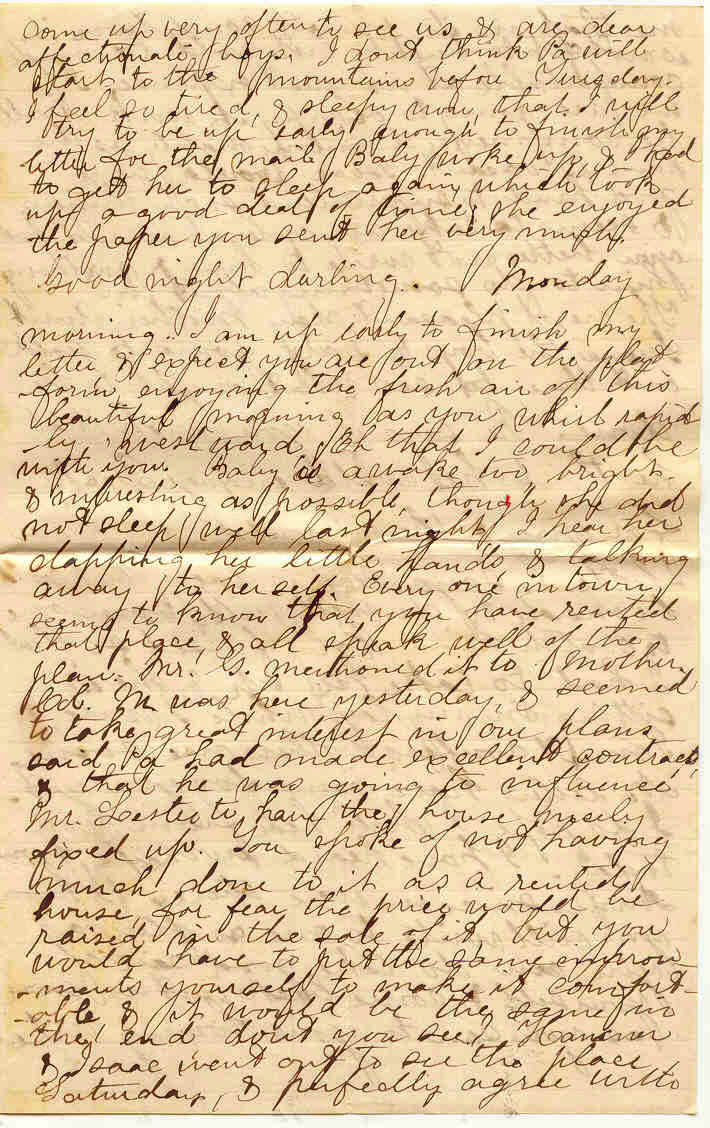 come up very often to see us & are dear
affectionate boys. I dont think Pa will
start to the mountains before Tuesday.
I feel so tired, & sleepy now, that I will
try to be up early enough to finish my
letter for the mail. Baby woke up, & I had
to get her to sleep again, which took
up a good deal of time; she enjoyed
the paper you sent her very much.
Good night darling. Monday
morning.. I am up early to finish my
letter & expect you are out on the plat
-form enjoying the fresh air of this
beautiful morning as you whirl rapid
ly, westward. Oh that I could be
with you. Baby is awake too bright
& interesting as possible, though she did
not sleep well last night, I hear her
clapping her little hands & talking
away to herself. Every one in town
seems to know that you have rented
that place, & all speak well of the
plan. Mr. G. mentioned it to Mother,
Col. M was here yesterday, & seemed
to take great interest in our plans
said Pa had made excellent contract,
& that he was going to influence
Mr. Lester to have the house nicely
fixed up. You spoke of not having
much done to it as a rented
house, for fear the price would be
raised in the sale of it, but you
would have to put the same improv
-ments yourself to make it comfort-
-able & it would be the same in
the end dont you see?
& Isaac went out to see the place
Saturday, & perfectly agree with